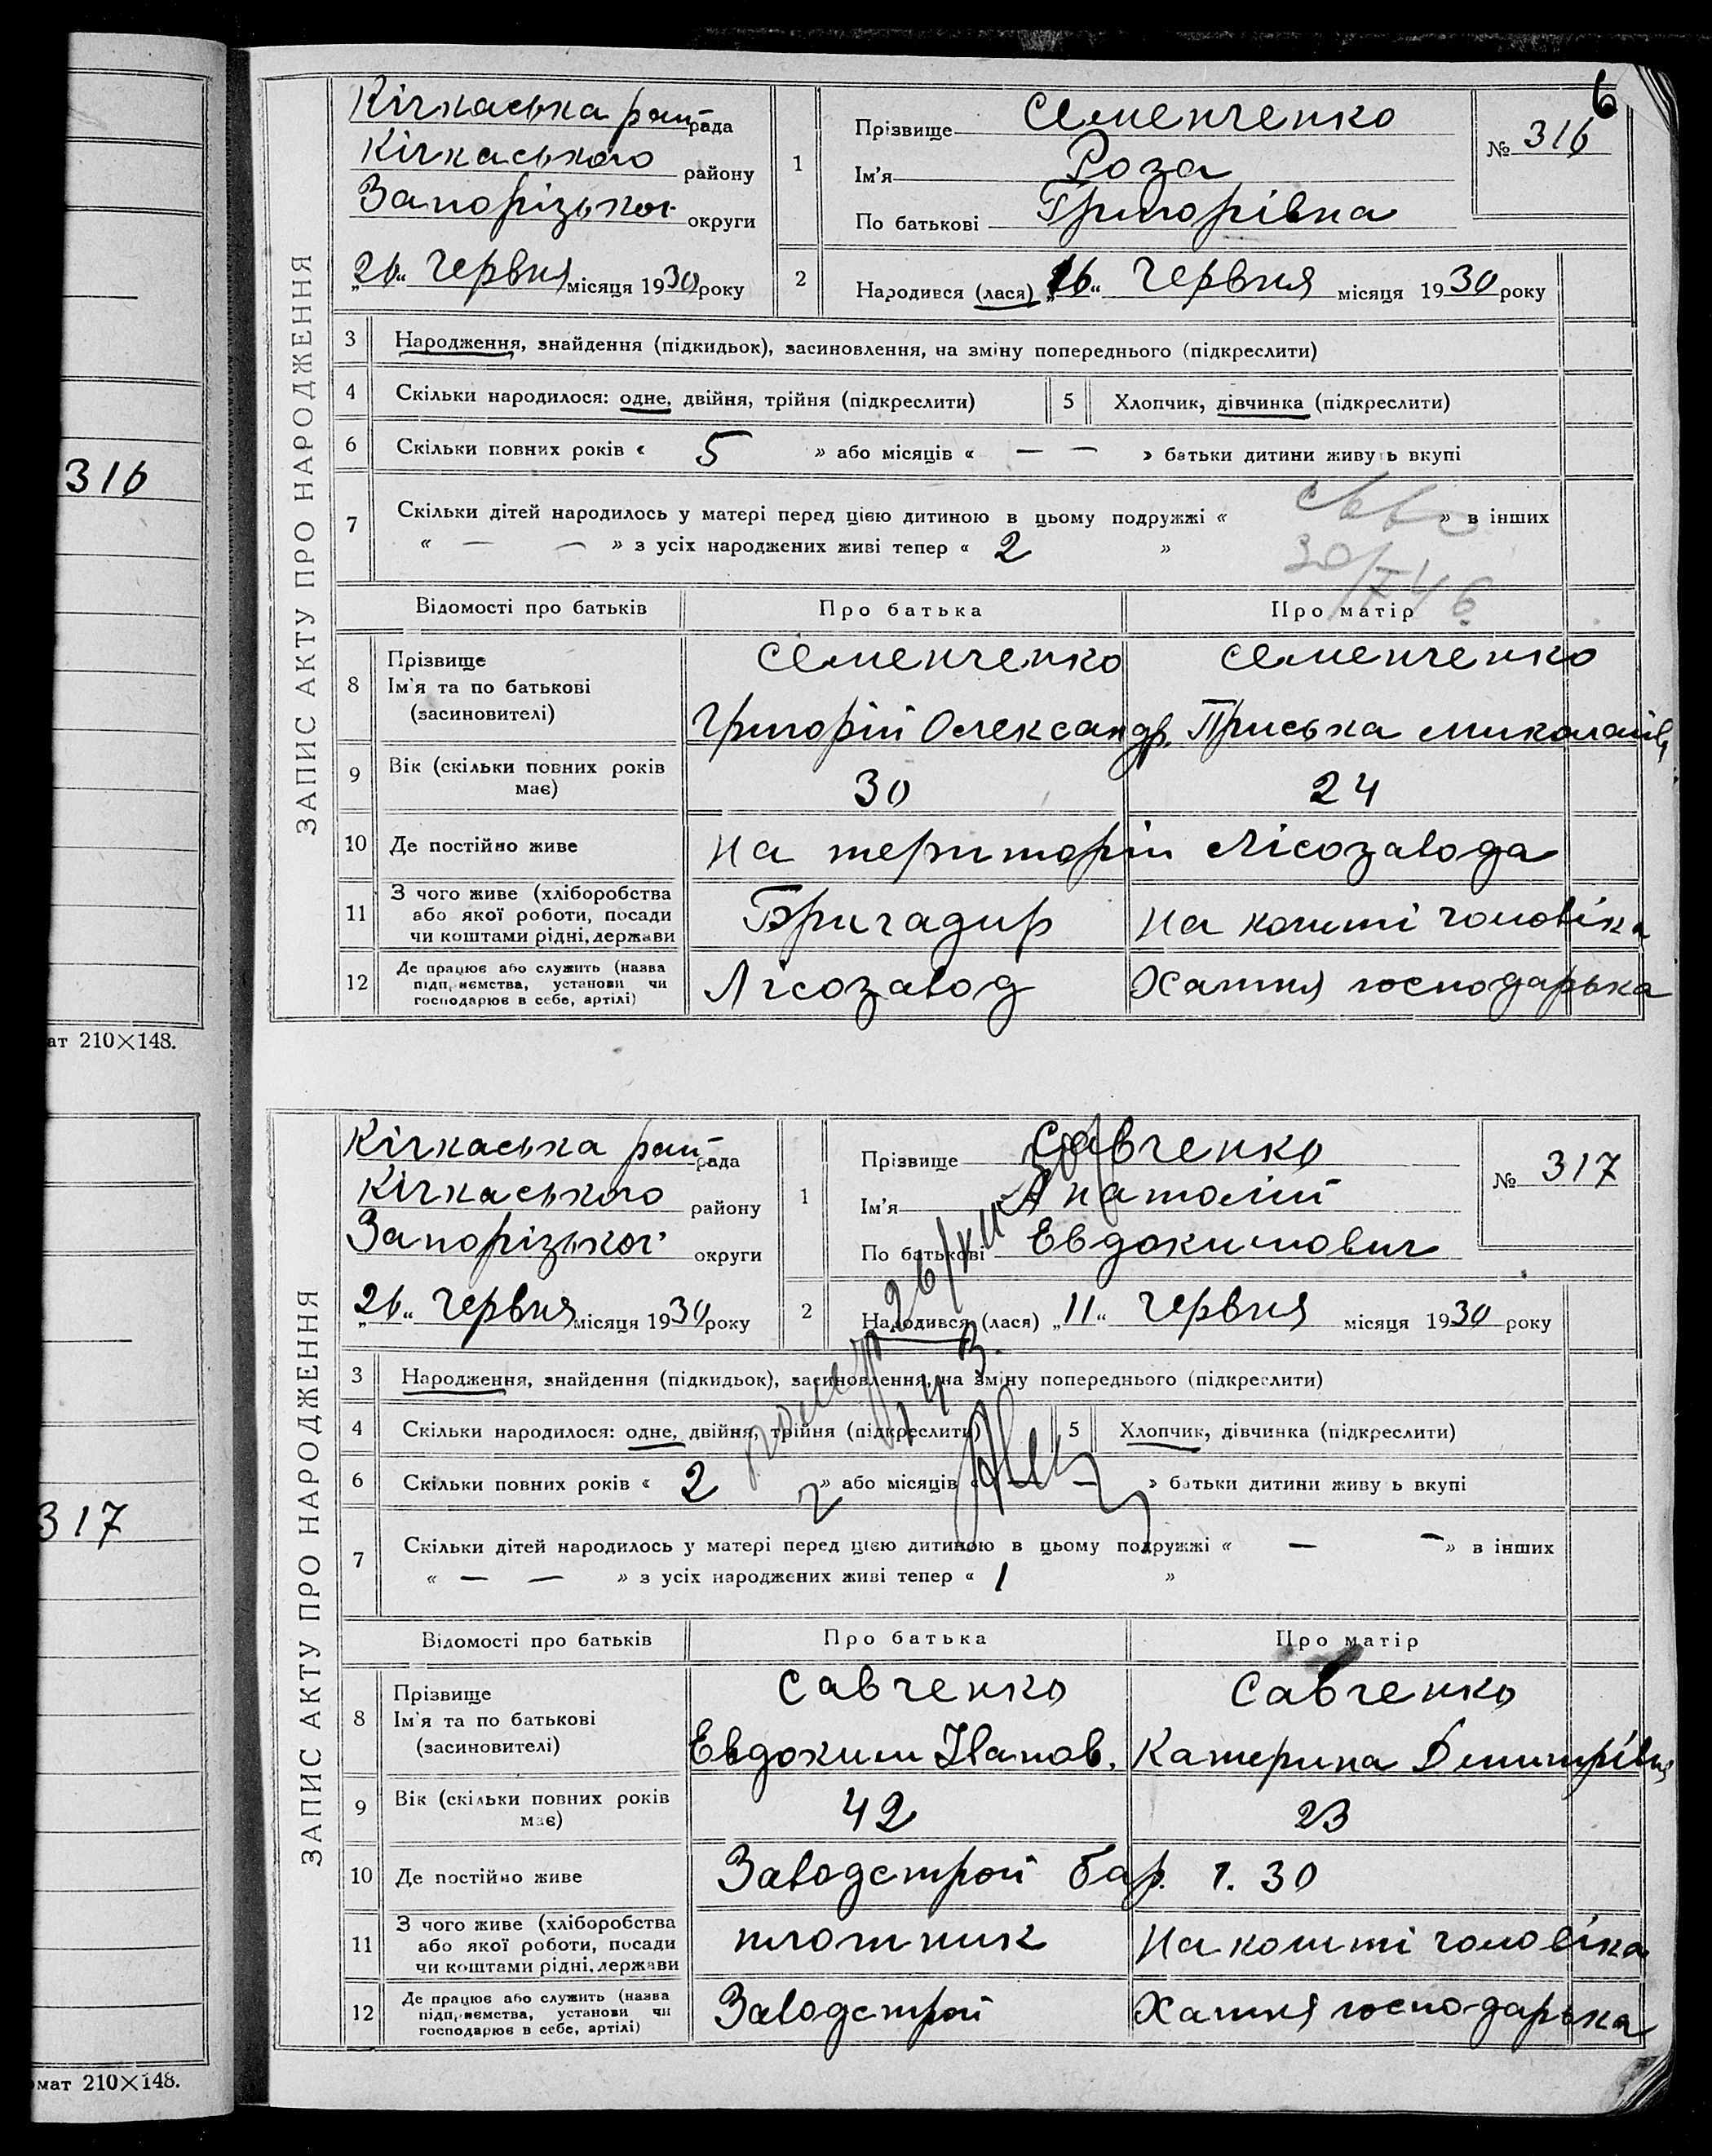 6
316
ат 210×148.
317
мат 210×148.
ЗАПИС АКТУ ПРО НАРОДЖЕННЯ
Кічкаська рай рада
Кічкаського району
Запорізької округи
„26“ Червня місяця 1930 року
1
Прізвище Семенченко
Ім’я Роза
По батькові Григорівна
№ 316
2
Народився (лася) „16“ Червня місяця 1930 року
3 Народження, знайдення (підкидьок), засиновлення, на зміну попереднього (підкреслити)
4 Скільки народилося: одне, двійня, трійня (підкреслити) 5 Хлопчик, дівчинка (підкреслити)
6 Скільки повних років « 5 » або місяців « — — » батьки дитини живуть вкупі
7 Скільки дітей народилось у матері перед цією дитиною в цьому подружжі « » в інших
« — — » з усіх народжених живі тепер « 2 »
Відомості про батьків Про батька Про матір
8 Прізвище Семенченко Семенченко
Ім’я та по батькові
(засиновителі) Григорій Олександр.Приська Миколаївн
9 Вік (скільки повних років
має) 30 24
10 Де постійно живе На території Лісозавода
11 З чого живе (хліборобства
або якої роботи, посади
чи коштами рідні, держави Бригадир На кошті чоловіка
12 Де працює або служить (назва
підприємства, установи чи
господарює в себе, артілі) Лісозавод Хатня господарька
ЗАПИС АКТУ ПРО НАРОДЖЕННЯ
Кічкаська рай рада
Кічкаського району
Запорізької округи
„26“ Червня місяця 1930 року
1
Прізвище Савченко
Ім’я Анатолій
По батькові Евдокимович
№ 317
2
Народився (лася) „11“ Червня місяця 1930 року
3 Народження, знайдення (підкидьок), засиновлення, на зміну попереднього (підкреслити)
4 Скільки народилося: одне, двійня, трійня (підкреслити) 5 Хлопчик, дівчинка (підкреслити)
6 Скільки повних років « 2 » або місяців « — » батьки дитини живуть вкупі
7 Скільки дітей народилось у матері перед цією дитиною в цьому подружжі « — — » в інших
« — — » з усіх народжених живі тепер « 1 »
Відомості про батьків Про батька Про матір
8 Прізвище Савченко Савченко
Ім’я та по батькові
(засиновителі) Евдоким Іванов. Катерина Димитрівна
9 Вік (скільки повних років
має) 42 23
10 Де постійно живе Заводстрой бар. 1. 30
11 З чого живе (хліборобства
або якої роботи, посади
чи коштами рідні, держави плотник На кошті чоловіка
12 Де працює або служить (назва
підприємства, установи чи
господарює в себе, артілі) Заводстрой Хатня господарька